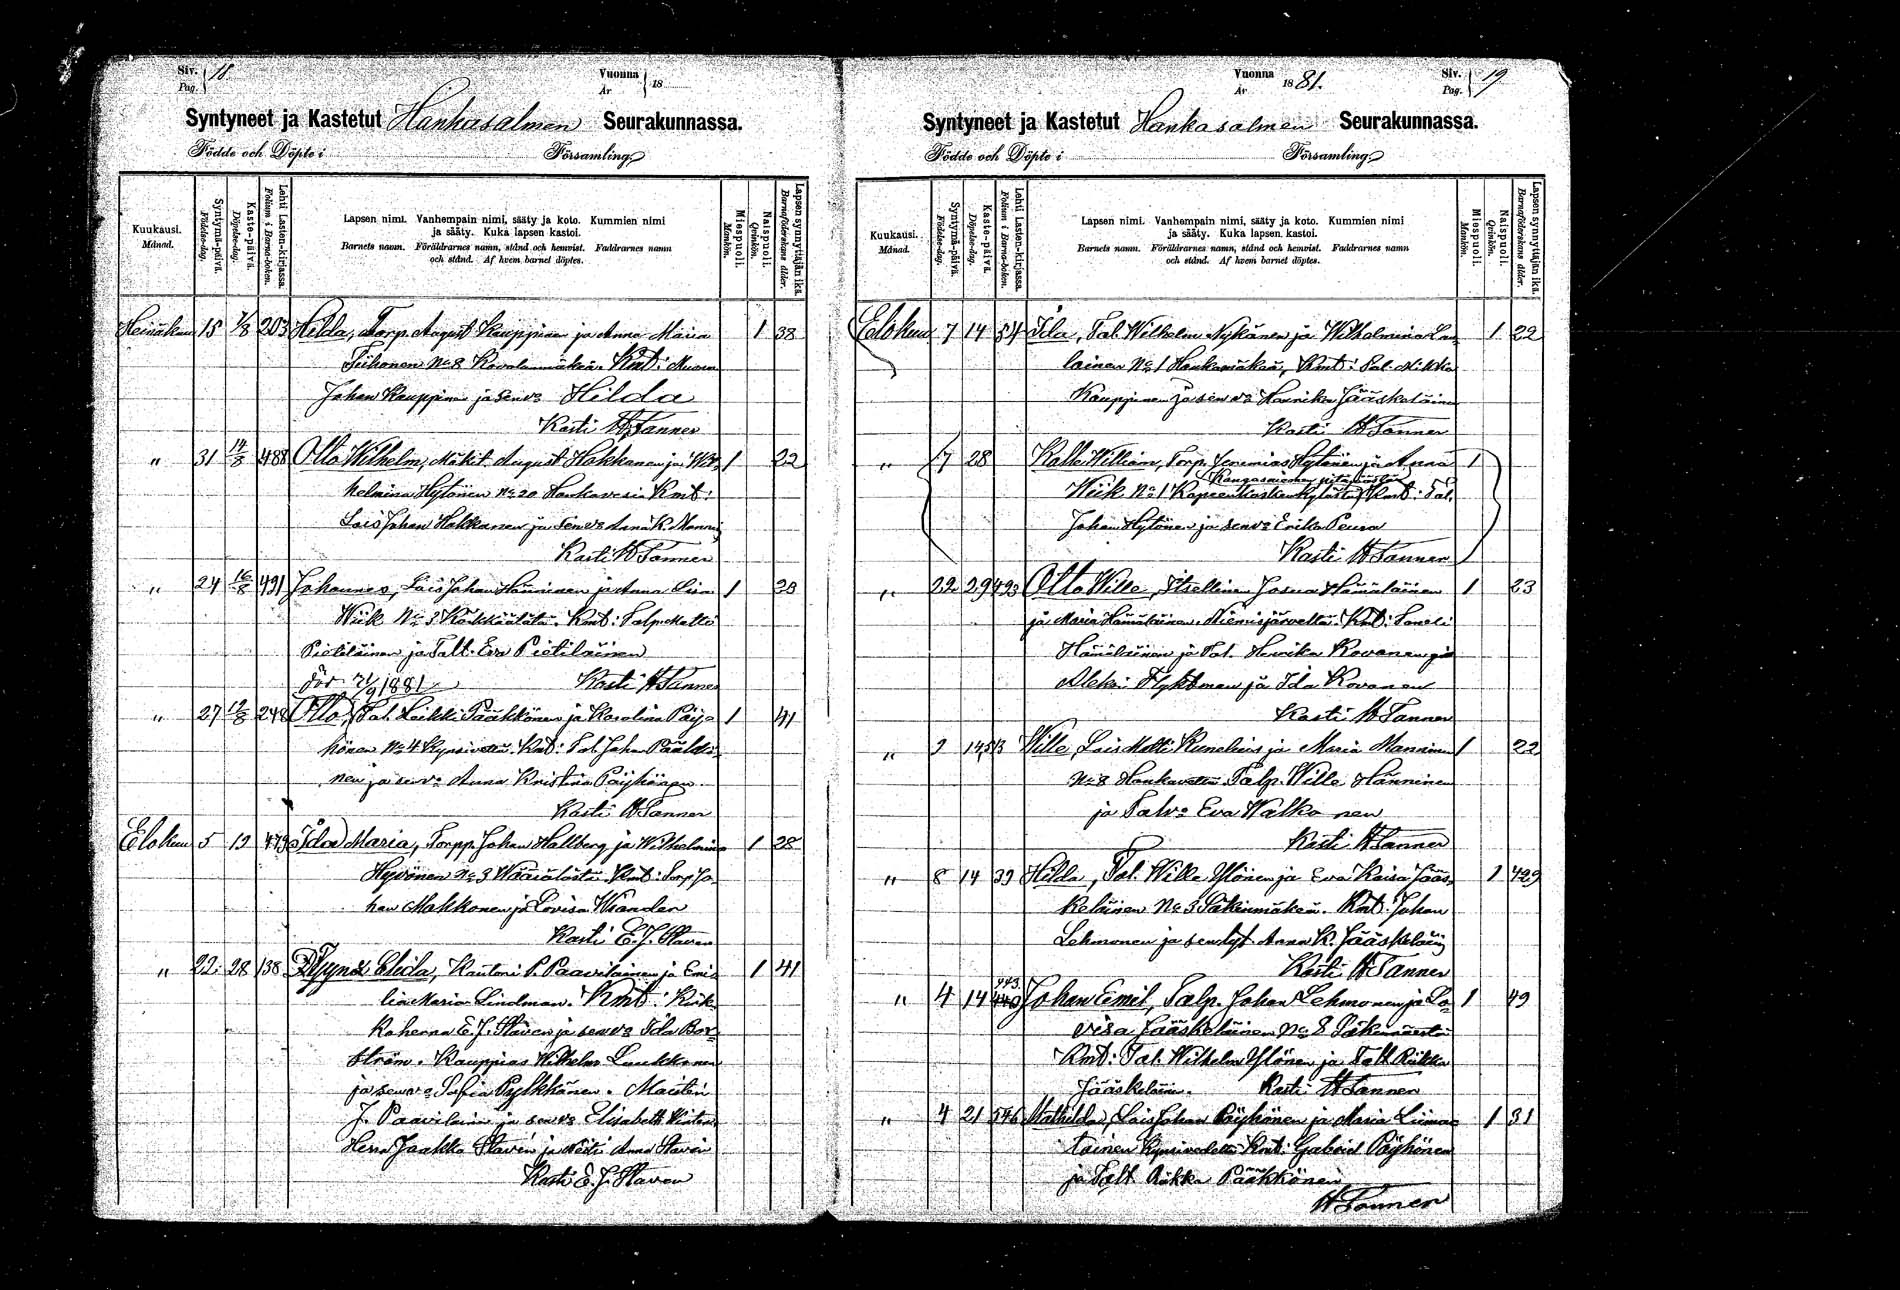 Siv. 18.
Pag.
Vuonna 18
År
Syntyneet ja Kastetut Hankasalmen Seurakunnassa.
Födde och Döpte i Församling
Kuukausi. Månad.
Syntymä-päivä. Födelse-dag.
Kaste-päivä. Döpelse-dag.
Lehti Lasten-kirjassa. Folium i Barna-boken.
Lapsen nimi. Vanhempain nimi, sääty ja koto. Kummien nimi
ja sääty. Kuka lapsen kastoi.
Barnets namn. Föräldrarnes namn, stånd och hemvist. Faddrarnes namn
och stånd. Af hvem barnet döptes.
Miespuoli. Mankön.
Naispuoli. Qvinkön.
Lapsen synnyttäjän ikä. Barnaföderskans ålder.
Heinäkuu 15 7/8 203 Hilda, Torp. August Kauppinen ja Anna Maria 1 38
Tiihonen No 8 Kovalanmäkiä. Kmt:
Johan Kauppinen ja senva Hilda
Kasti H Tanner
" 31 14/8 488 Otto Wilhelm, Mäkit. August Hakkanen ja Wil- 1 22
helmina Hytönen No 20 Hankavesiä Kmt:
Lois Johan Hakkanen ja senva Anna K. Manni
Kasti H Tanner
" 24 16/8 491 Johannes, Lois Johan Hänninen ja Anna Lisa 1 23
Wiik No 3 Kärkkäälätä. Kmt: Talp. Matti
Pietiläinen ja Talt. Eva Pietiläinen
Kasti H Tanner
1881
" 27 12/8 248 Otto, Tal. Heikki Pääkkönen ja Karolina Päyh- 1 41
hönen No 4 Kynsivettä. Kmt: Tal. Johan Pääkkö-
nen ja senva Anna Kristina Päyhönen
Kasti H Tanner
Elokuu 5 12 479 Ida Maria, Torpp. Johan Hallberg ja Wilhelmina 1 28
Hyvönen No 3 Kmt: Torp. Jo-
han Makkonen ja Lovisa Wiander
Kasti E. J. Staven
" 22 28 138 Elida, Kanttori P. Paavilainen ja Emi- 1 41
lia Maria Lindman. Kmt: Kirk-
koherra E. J. Staven ja senva Ida Bor-
ström. Kauppias Wilhelm Luukkonen
ja senva Sofia Pylkkänen. Maisteri
J. Paavilainen ja senva Elisabeth
Herra Jaakko Staven ja Neiti Anna Staven
Kasti E. J. Staven
Vuonna 1881.
År
Siv. 19
Pag.
Syntyneet ja Kastetut Hankasalmen Seurakunnassa.
Födde och Döpte i Församling
Kuukausi. Månad.
Syntymä-päivä. Födelse-dag.
Kaste-päivä. Döpelse-dag.
Lehti Lasten-kirjassa. Folium i Barna-boken.
Lapsen nimi. Vanhempain nimi, sääty ja koto. Kummien nimi
ja sääty. Kuka lapsen kastoi.
Barnets namn. Föräldrarnes namn, stånd och hemvist. Faddrarnes namn
och stånd. Af hvem barnet döptes.
Miespuoli. Mankön.
Naispuoli. Qvinkön.
Lapsen synnyttäjän ikä. Barnaföderskans ålder.
Elokuu 7 14 54 Ida, Tal. Wilhelm Nykänen ja Wilhelmina Lau- 1 22
lainen No 1 Hankamäkiä, Kmt: Tal. Mikko
Kauppinen ja senva Henrika Jääskeläinen
Kasti H Tanner
" 7 28 Kalle Williám, Torp. Jeremias Hytönen ja Anna 1
Kangasniemen pitäjästä
Wiik No 1 Kmt: Tal.
Johan Hytönen ja senva Erika Peura
Kasti H Tanner
" 22 29 493 Otto Wille, Itsellinen Josua Hämäläinen 1 23
ja Maria Hämäläinen. Niemisjärveltä. Kmt: Taneli
Hämäläinen ja Tal. Henrika Kovanen ja
Aleksi Flyktman ja Ida Kovanen
Kasti H Tanner
" 9 14 513 Wille, Lois Matti Runelius ja Maria Manninen 1 22
No 8 Hankavettä Talp. Wille Hänninen
ja Talva Eva Walkonen
Kasti H Tanner
" 8 14 39 Hilda, Tal. Wille Ylönen ja Eva Kaisa Jääs- 1 429
keläinen No 3 Säkinmäkeä. Kmt: Johan
Lehmonen ja Anna K. Jääskeläin
Kasti H Tanner
" 4 14 443 449 Johan Emil, Talp. Johan Lehmonen ja Lo- 1 49
visa Jääskeläinen No 8
Kmt: Tal. Wilhelm Ylönen ja Talt. Riikka
Jääskeläin. Kasti H Tanner
" 4 21 546 Mathilda, Lois Johan Päyhönen ja Maria Liima- 1 31
tainen Kmt: Gabriel Päyhönen
ja Talt. Riikka Pääkkönen
H Tanner